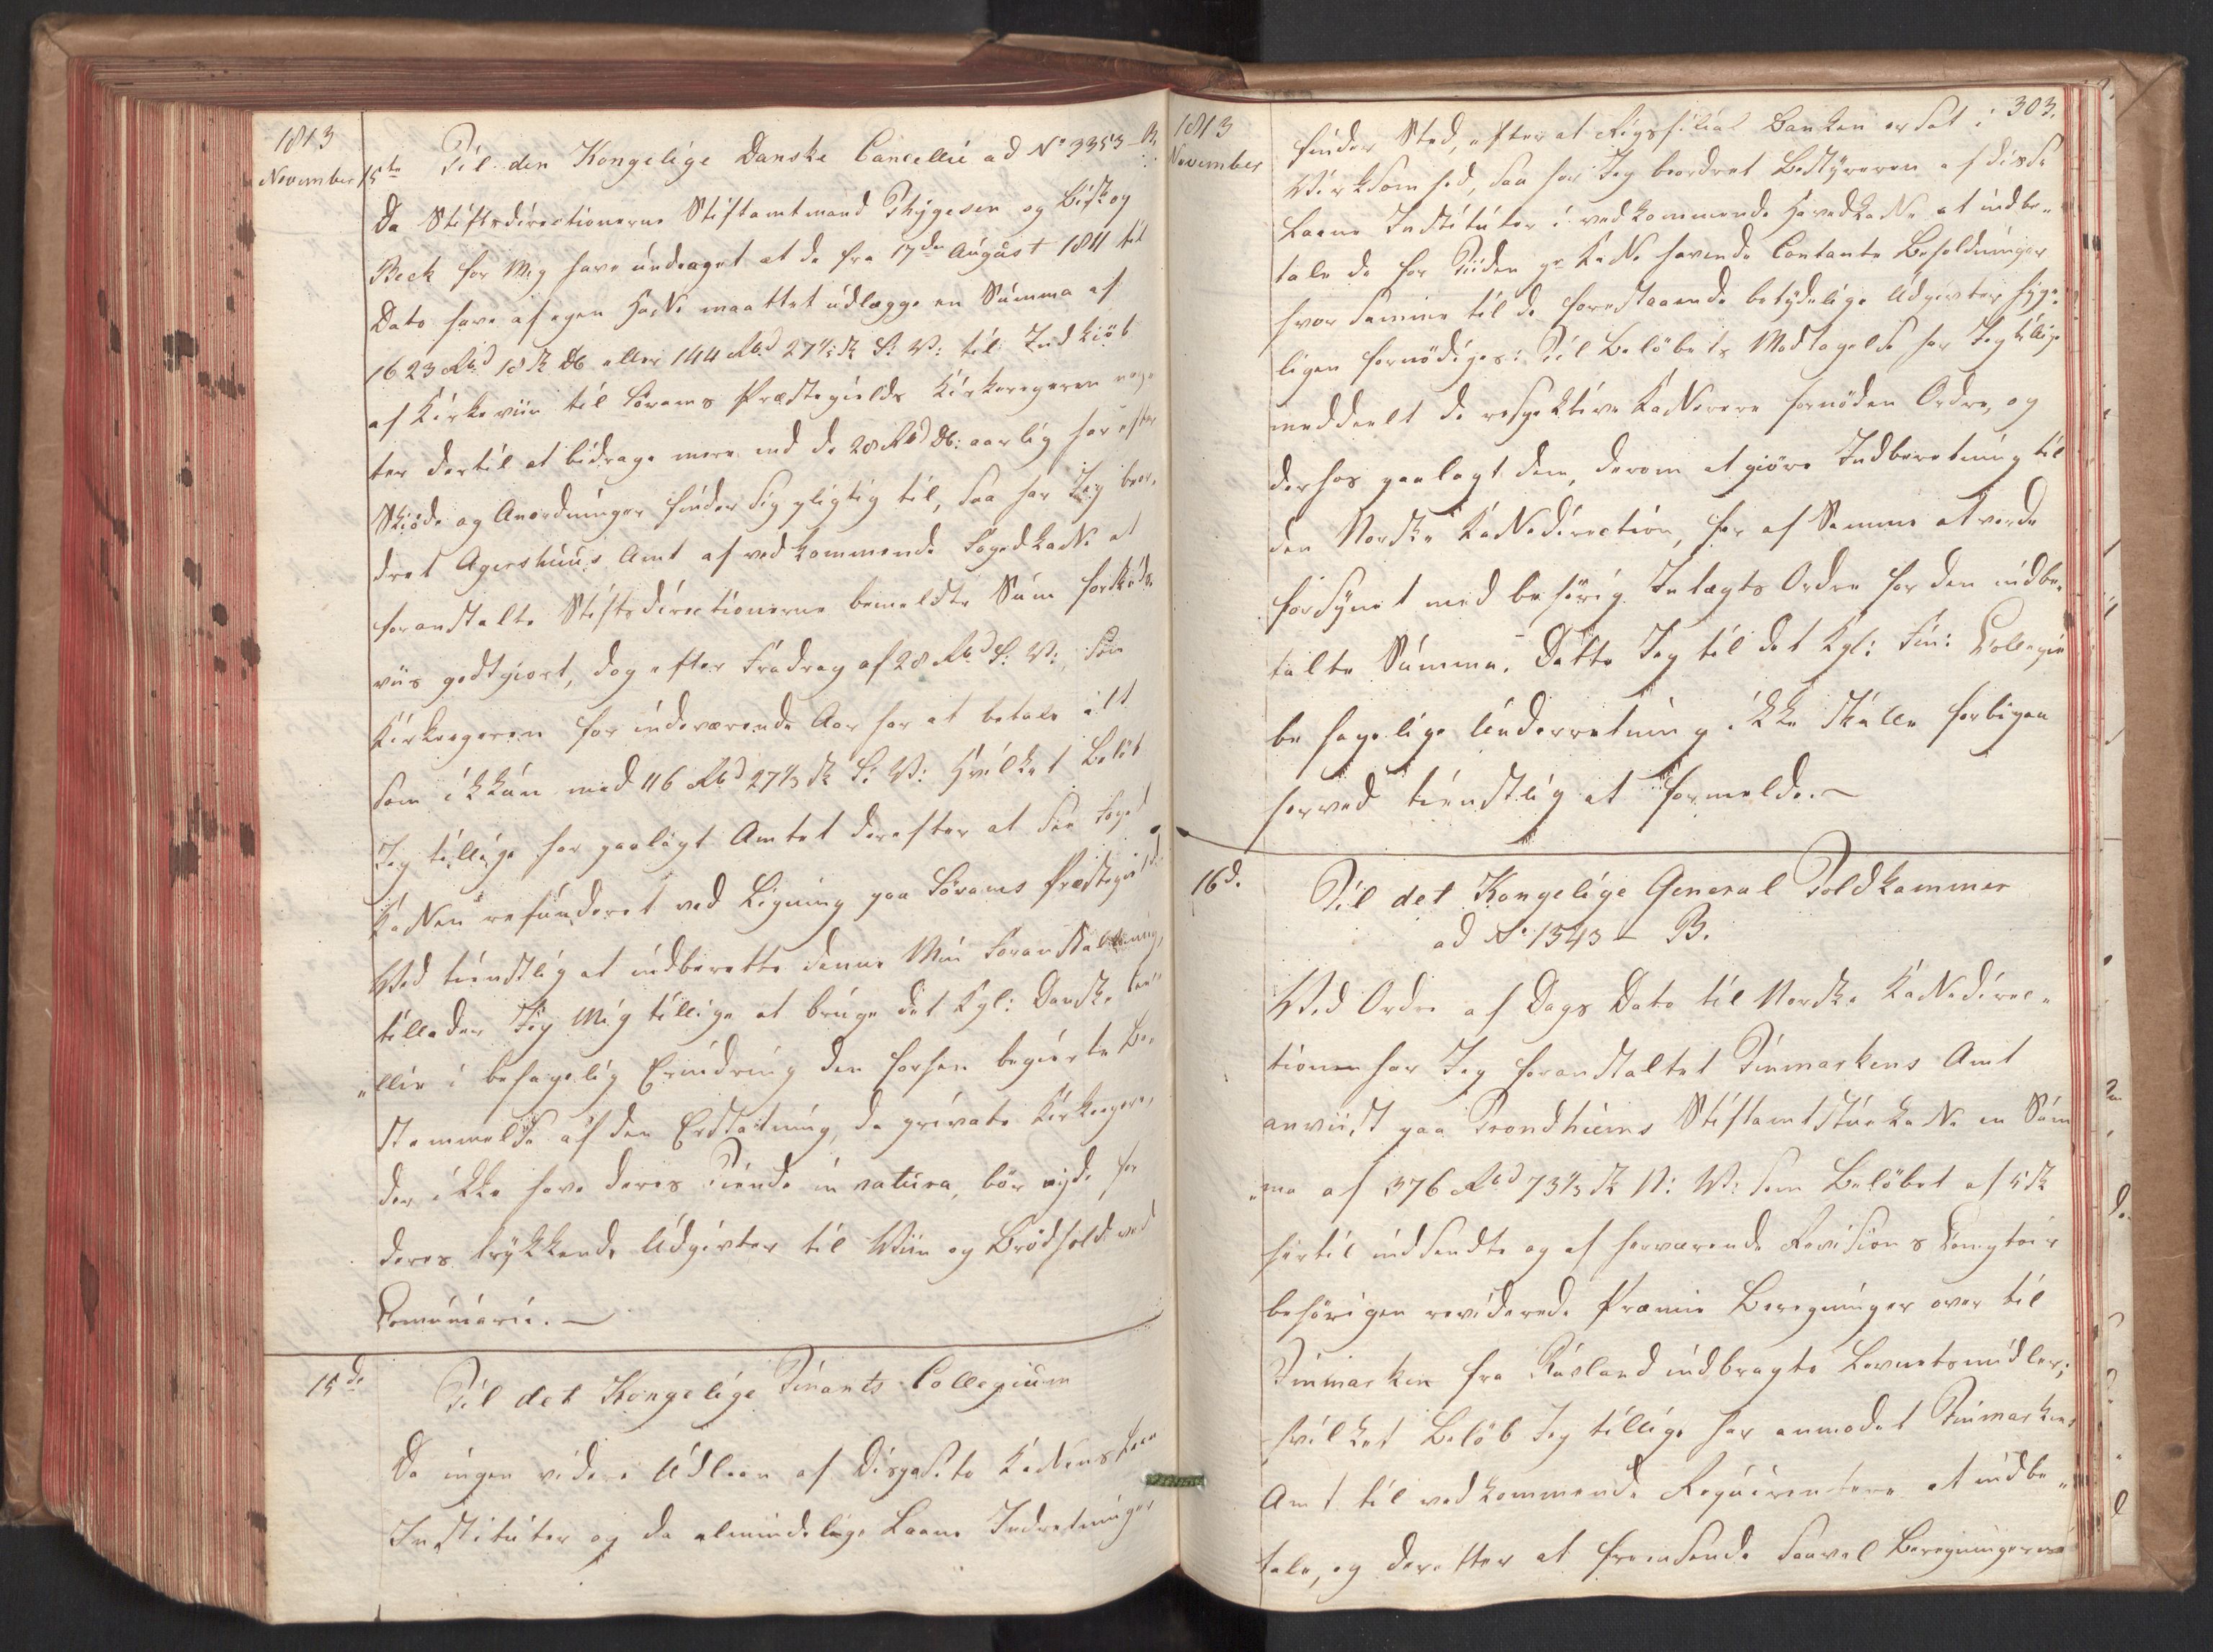 1813
November 15de Til den Kongelige Danske Cancellie ad No 3353 B.
Da Stiftsdirectionerne Stiftamtmand Thygesen og Biskop
Bech for Mig have andraget at de fra 17de August 1811 til
Dato have af egen Kasse maattet udlægge en Summa af
1623 Rbd 18 sk DC eller 144 Rbd 27 1/3 sk S: V: til Indkiöb
af Kirkeviin til Sörums Præstegields Kirkeeyeren
ter dertil at bidrage mere end de 28 Rbd DC: aarlig han efter
Skiöde og Anordninger finder sig pligtig til, saa har Jeg beor-
dret Agershuus Amt af vedkommende Fogedkasse at
foranstalte Stiftsdirectionerne bemeldte Sum forskuds-
viis godtgiort, dog efter Fradrag af 28 Rbd S: V:, som
Kirkeeyeren for indeværende Aar har at betale alt
som ikkun med 116 Rbd 27 1/3 sk S: V: Hvilket Beløb
Jeg tillige har paalagt Amtet derefter at see Foged
Kassen refunderet ved Ligning paa Sörums Præstegield.
Ved tienstlig at indberette denne Min Foranstaltning,
tillader Jeg Mig tillige at bringe det Kgl: Danske Can-
"ellie i behagelig Erindring den forhen begierte Be-
stemmelse af den Erstatning, de private Kirkeeyere,
der ikke have deres Tiende in natura, bör nyde for
deres trykkende Udgivter til Viin og Brödhold ved
Comunionen.
15de
Til det Kongelige Finants Collegium
Da ingen videre Udlaan af Disposito Kassens Laane
Instituter og de almindelige Laane Indretninger
1813
November
303.
finder Sted, efterat Rigsfilial Banken er sat i
Virksomhed, saa har Jeg beordret Bestyreren af disse
Laane Instituter i vedkommende Hovedkasse at indbe-
tale de for Tiden pr Kasse havende Contante Beholdninger
hvor samme til de forestaaende betydelige Udgivter höye-
ligen fornödiges: Til Belöbets Modtagelse har Jeg tillige
meddeelt de respektive Kasserere fornöden Ordre, og
derhos paalagt dem, derom at giöre Indberetning til
den Norske Kassedirection, for af Samme at vorde
forsynet med behörig Intægts Ordre for den indbe-
talte Summa. Dette Jeg til det Kgl: Fin: Collegie
behagelige Underretning ikke skulle forbigaae
herved tienstlig at formelde.
16d.
Til det Kongelige General Toldkammer
ad No 1543 – B.
Ved Ordre af Dags Dato til Norske Kassedirec-
tionen har Jeg foranstaltet Finmarkens Amt
anviist paa Trondhiems Stiftamtstuekasse en Sum
"ma af 376 Rbd 73 1/3 sk N: V: som Belöbet af 5
hertil indsendte og af herværende Revisions Comptoir
behörigen reviderede Præmie Beregninger over til
Finmarken fra Rusland indbragte Levnetsmidler;
hvilket Belöb Jeg tillige har anmodet Finmarkens
Amt til vedkommende Requirentere at udbe-
tale, og derefter at fremsende saavel Beregningerne